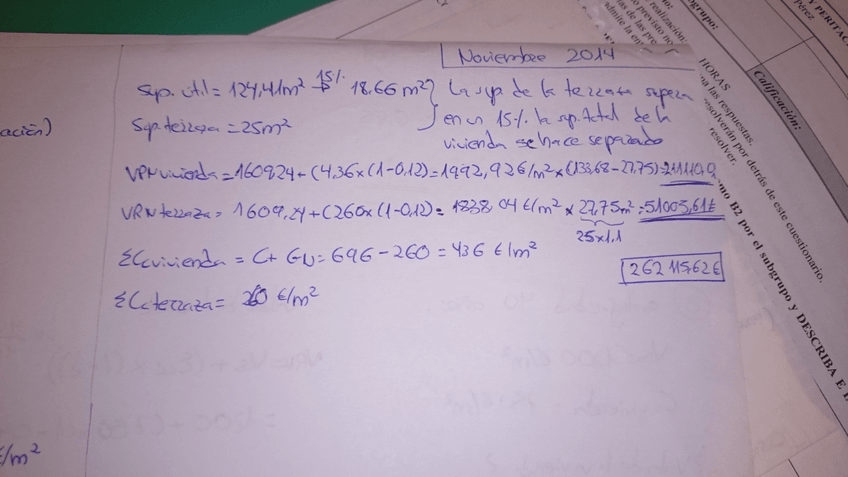 Noviembre 2014
Sup. útil = 124,41m² 15% → 18,66 m² } la sup de la terraza supera
en un 15% la sup. total de la
Sup. terraza = 25m²
vivienda se hace separado
VPN vivienda = 1609,24 + (4,36 x (1-0,12) = 1992,92€/m² x (133,68 - 27,75) =
VRN terraza = 1609,24 + (260 x (1-0,12) = 1838,04 €/m² x 27,75m² = 51005,61€
25x1,1
ΣCc vivienda = C + GU = 696 - 260 = 436 €/m²
262115,62€
ΣCc terraza = 260 €/m²
ación)
€/m²
HORAS
na las respuestas.
resolver.
solverán por detrás de este cuestionario.
mo B2 por el subgrupo y DESCRIBA E
Calificación:
Subgrupo:
realización:
Pérez
Y PERITAC